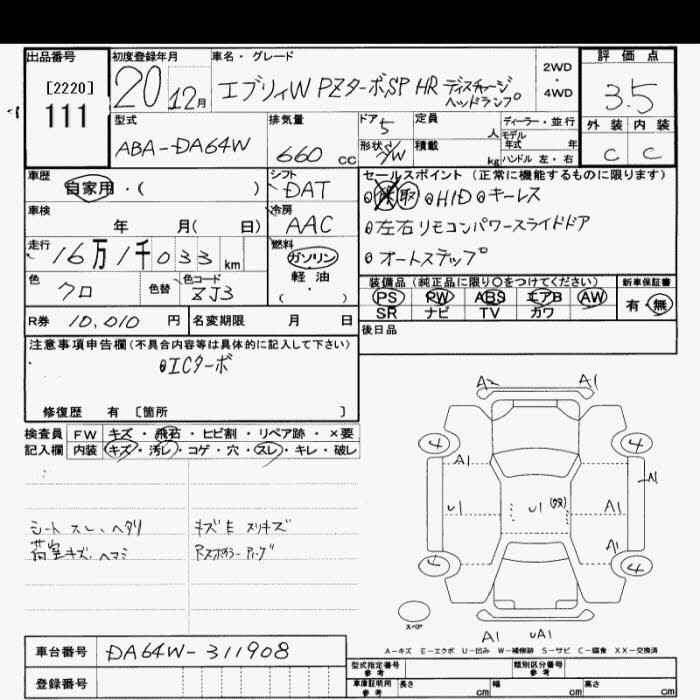 出品番号
[2220]
111
初度登録年月
20 12月
車名・グレード
エブリィW PZターボSP HR ディスチャージ
ヘッドランプ
2WD
・
4WD
評価点
3.5
外装 内装
C C
型式
ABA-DA64W
排気量
660 cc
ドア 5
形状 5/W
定員
人
積載
kg
ディーラー・並行
モデル
年式 年
ハンドル 左・右
車歴
自家用・( )
シフト
DAT
車検
年 月( 日)
冷房
AAC
走行
16万1千033 km
燃料
ガソリン
軽油
・
( )
色
クロ
色替
色コード
ZJ3
R券 10,010 円
名変期限 月 日
セールスポイント(正常に機能するものに限ります)
取 HID キーレス
左右リモコンパワースライドドア
オートステップ
装備品(純正品に限り〇をつけてください)
PS PW ABS エアB AW
SR ナビ TV カワ
新車保証書
有・無
後日品
注意事項申告欄(不具合内容等は具体的に記入して下さい)
ICターボ
修復歴 有 〔箇所 〕
検査員
記入欄
FW キズ・飛石・ヒビ割・リペア跡・×要
内装 キズ・汚レ・コゲ・穴・スレ・キレ・破レ
シート スレ、ヘタリ
荷室キズ、ヘコミ
キズE スリキズ
A2 A1
4 4
A1 A1
U1 U1 A1
A1
4 4
スペア
A1 UA1
A-キズ E-エクボ U-凹み W-補修跡 S-サビ C-腐食 XX-交換済
車台番号 DA64W-311908
登録番号
型式指定番号
参考
類別区分番号
参考
車庫証明用
参考
長さ cm 幅 cm 高さ cm